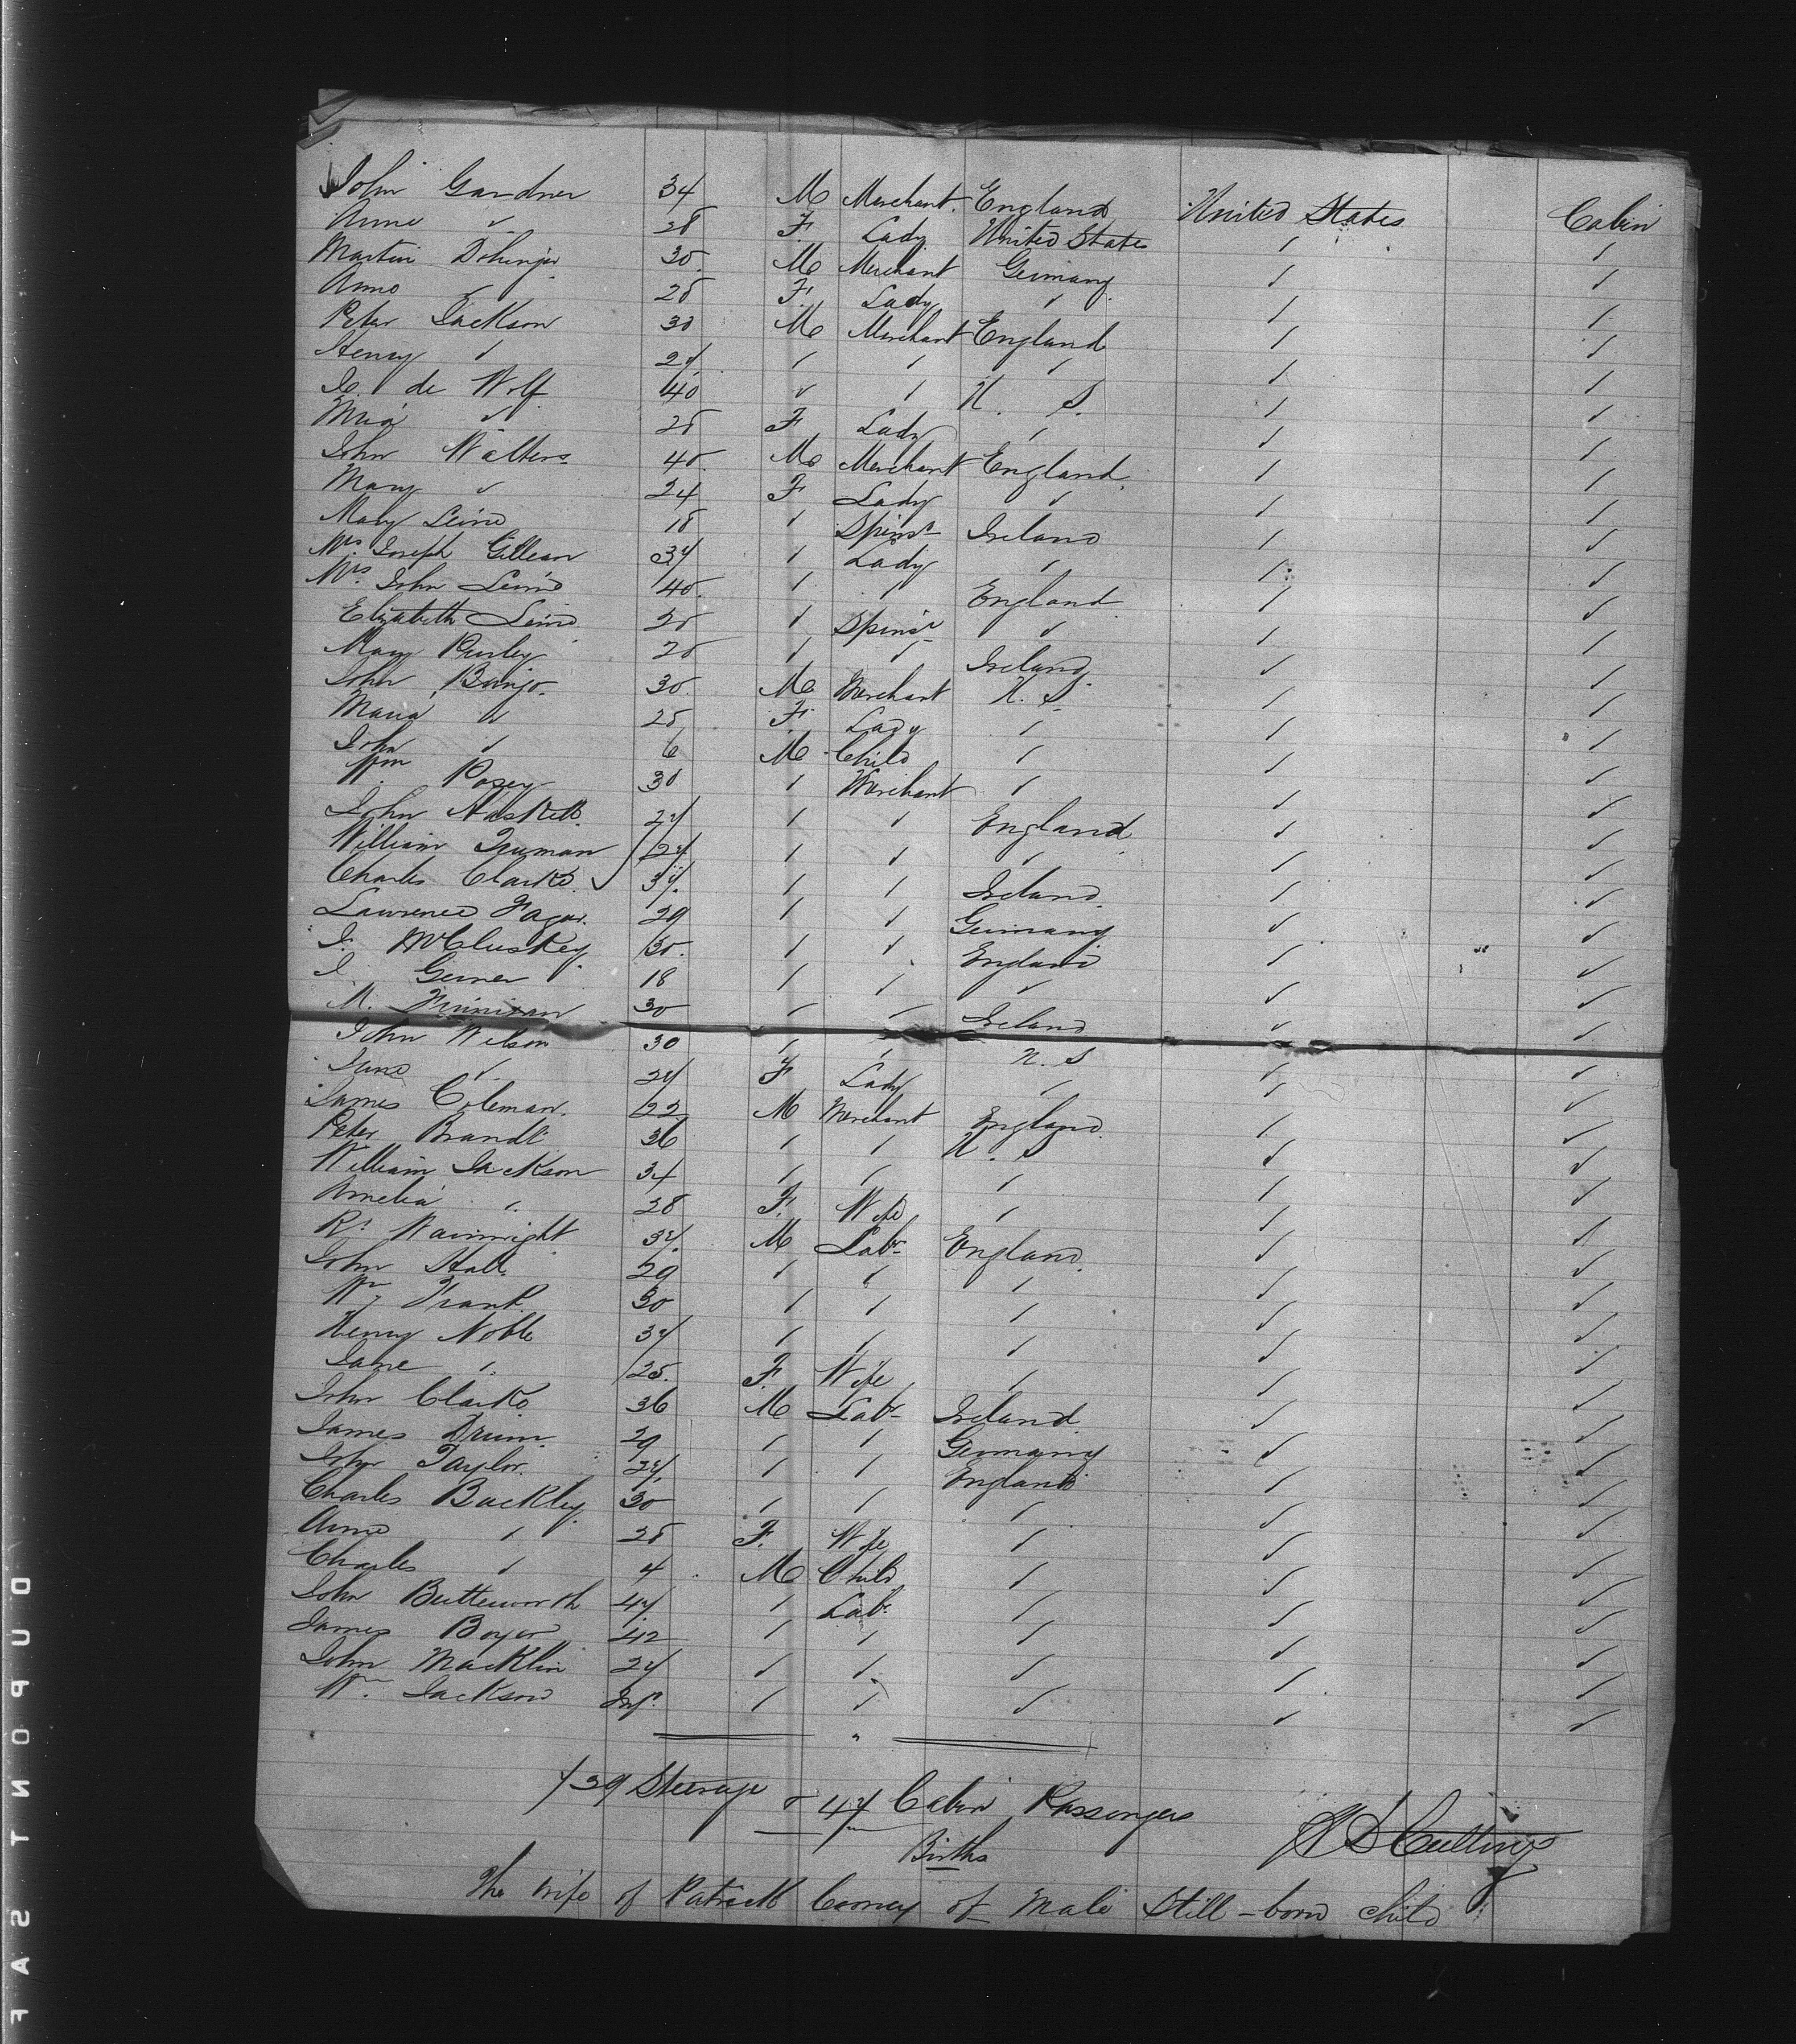 John Gardner 34 M Merchant England United States Cabin
Anne " 28 F Lady United States " "
Martin 30 M Merchant Germany " "
Anne " 28 F Lady " " "
Peter Jackson 30 M Merchant England " "
Henry " 24 " " " " "
de Wolf 40 " " U. S. " "
" 28 F Lady " " "
John Walters 40 M Merchant England " "
Mary " 24 F Lady " " "
Mary 18 " Spinsr Ireland " "
Mrs Joseph Gillean 34 " Lady " " "
Mrs John 40 " " England " "
Elizabeth 25 " Spinsr " " "
Mary 25 " " Ireland " "
John 30 M Merchant U. S. " "
Maria " 25 F Lady " " "
John " 6 M Child " " "
Wm Posey 30 " Merchant " " "
John 24 " " England " "
William Truman 24 " " " " "
Charles Clarke 34 " " Ireland " "
Lawrence 29 " " Germany " "
McCluskey 30 " " England " "
18 " " " " "
M. Finnigan 30 " " Ireland " "
John Wilson 30 " " U. S " "
Jane " 24 F Lady " " "
James Coleman 22 M Merchant England " "
Peter Brandt 36 " " U. S " "
William Jackson 34 " " " " "
Amelia " 28 F Wife " " "
Rt Wainright 34 M Labr England " "
John Hall 29 " " " " "
Wm Frank 30 " " " " "
Henry Noble 34 " " " " "
Jane " 25 F Wife " " "
John Clarke 36 M Labr Ireland " "
James Drum 29 " " Germany " "
John Taylor 24 " " England " "
Charles Buckley 30 " " " " "
Anne " 28 F Wife " " "
Charles " 4 M Child " " "
John Butterworth 44 " Labr " " "
James Boyer 42 " " " " "
John Macklin 24 " " " " "
Wm Jackson Inft " " " " "
739 Steerage & 47 Cabin Passengers
Births
The wife of Patrick Carney of Male Still-born child
DUPONT SAF